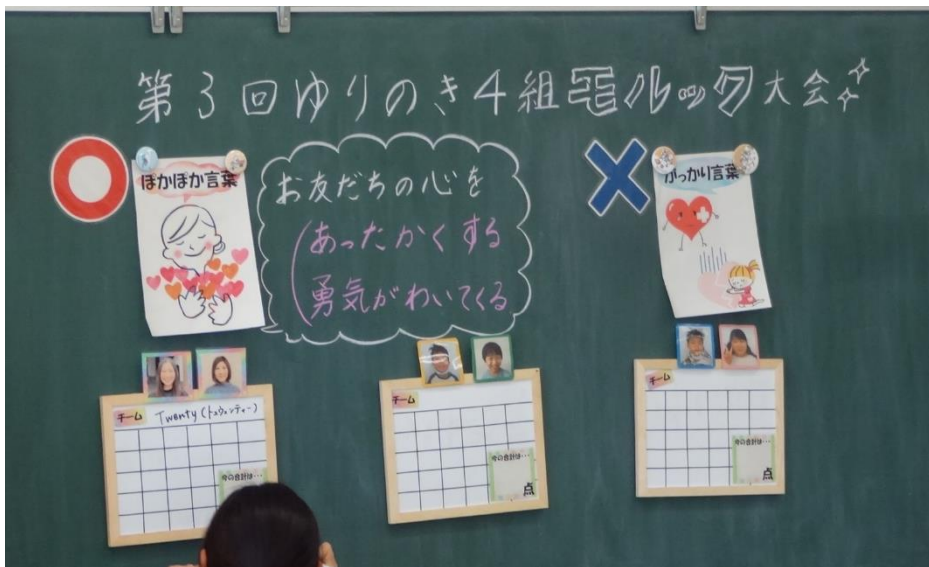 第3回ゆりのき4組モルック大会
ほかほか言葉
お友だちの心を
あったかくする
勇気がわいてくる
がっかり言葉
チーム Twenty(トゥウェンティー)
今の合計は…
チーム
今の合計は…
点
チーム
今の合計は…
点